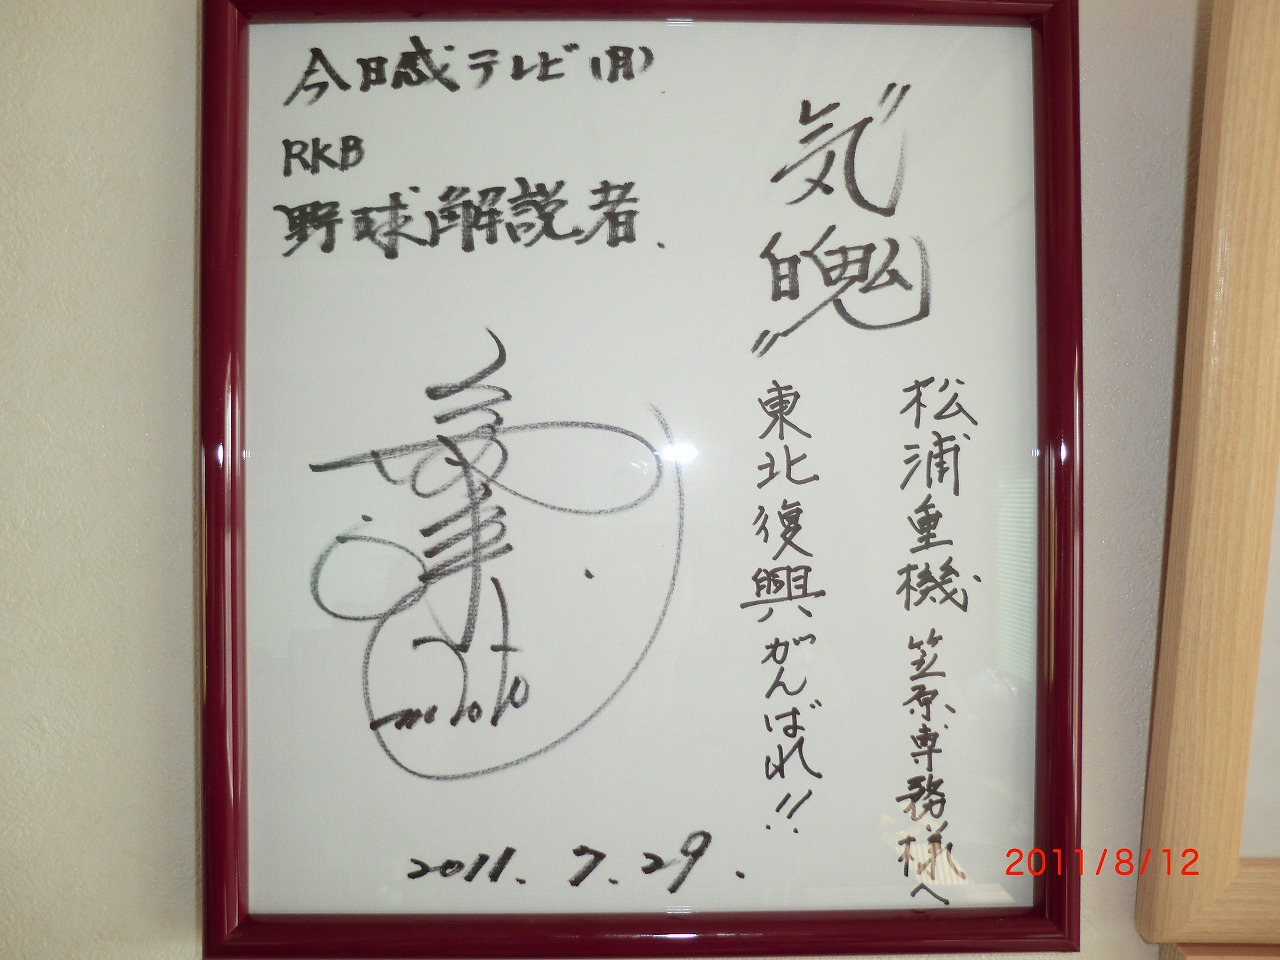 今日感テレビ(月)
RKB
野球解説者.
"気魄"
松浦重機 笠原専務様へ
東北復興がんばれ!!
2011.7.29.
2011/8/12